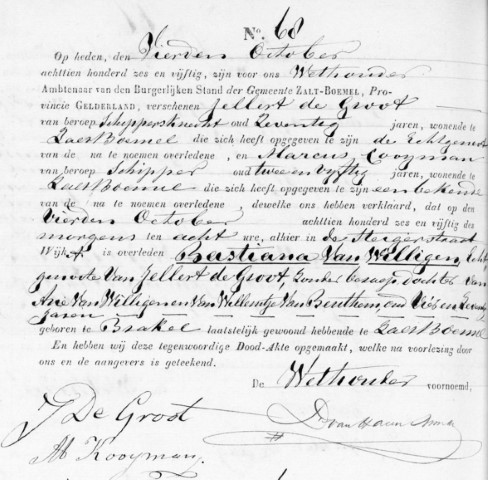 No. 68
Op heden, den Vierden October
achttien honderd zes en vijftig, zijn voor ons Wethouder
Ambtenaar van den Burgerlijken Stand der Gemeente ZALT-BOEMEL, Pro-
vincie GELDERLAND, verschenen Jellert de Groot
van beroep Schippersknecht oud Zeventig jaren, wonende te
Zalt Boemel die zich heeft opgegeven te zijn de Echtgenoot
van de na te noemen overledene, en Marcus Kooyman
van beroep Schipper oud twee en vyftig jaren, wonende te
Zalt Boemel die zich heeft opgegeven te zijn een bekende
van de na te noemen overledene, dewelke ons hebben verklaard, dat op den
Vierden October achttien honderd zes en vijftig des
morgens ten acht ure, alhier in de Steigerstraat
Wijk is overleden Bastiana Van Willigen, Echt
genoote Van Jellert de Groot, Zonder beroep, dochter van
Arie Van Willigen en Van Willemtje Van Benthem, oud
Jaren
geboren te Brakel laatstelijk gewoond hebbende te Zalt Boemel
En hebben wij deze tegenwoordige Dood-Akte opgemaakt, welke na voorlezing door
ons en de aangevers is geteekend.
De Wethouder voornoemd,
J De Groot
M Kooyman